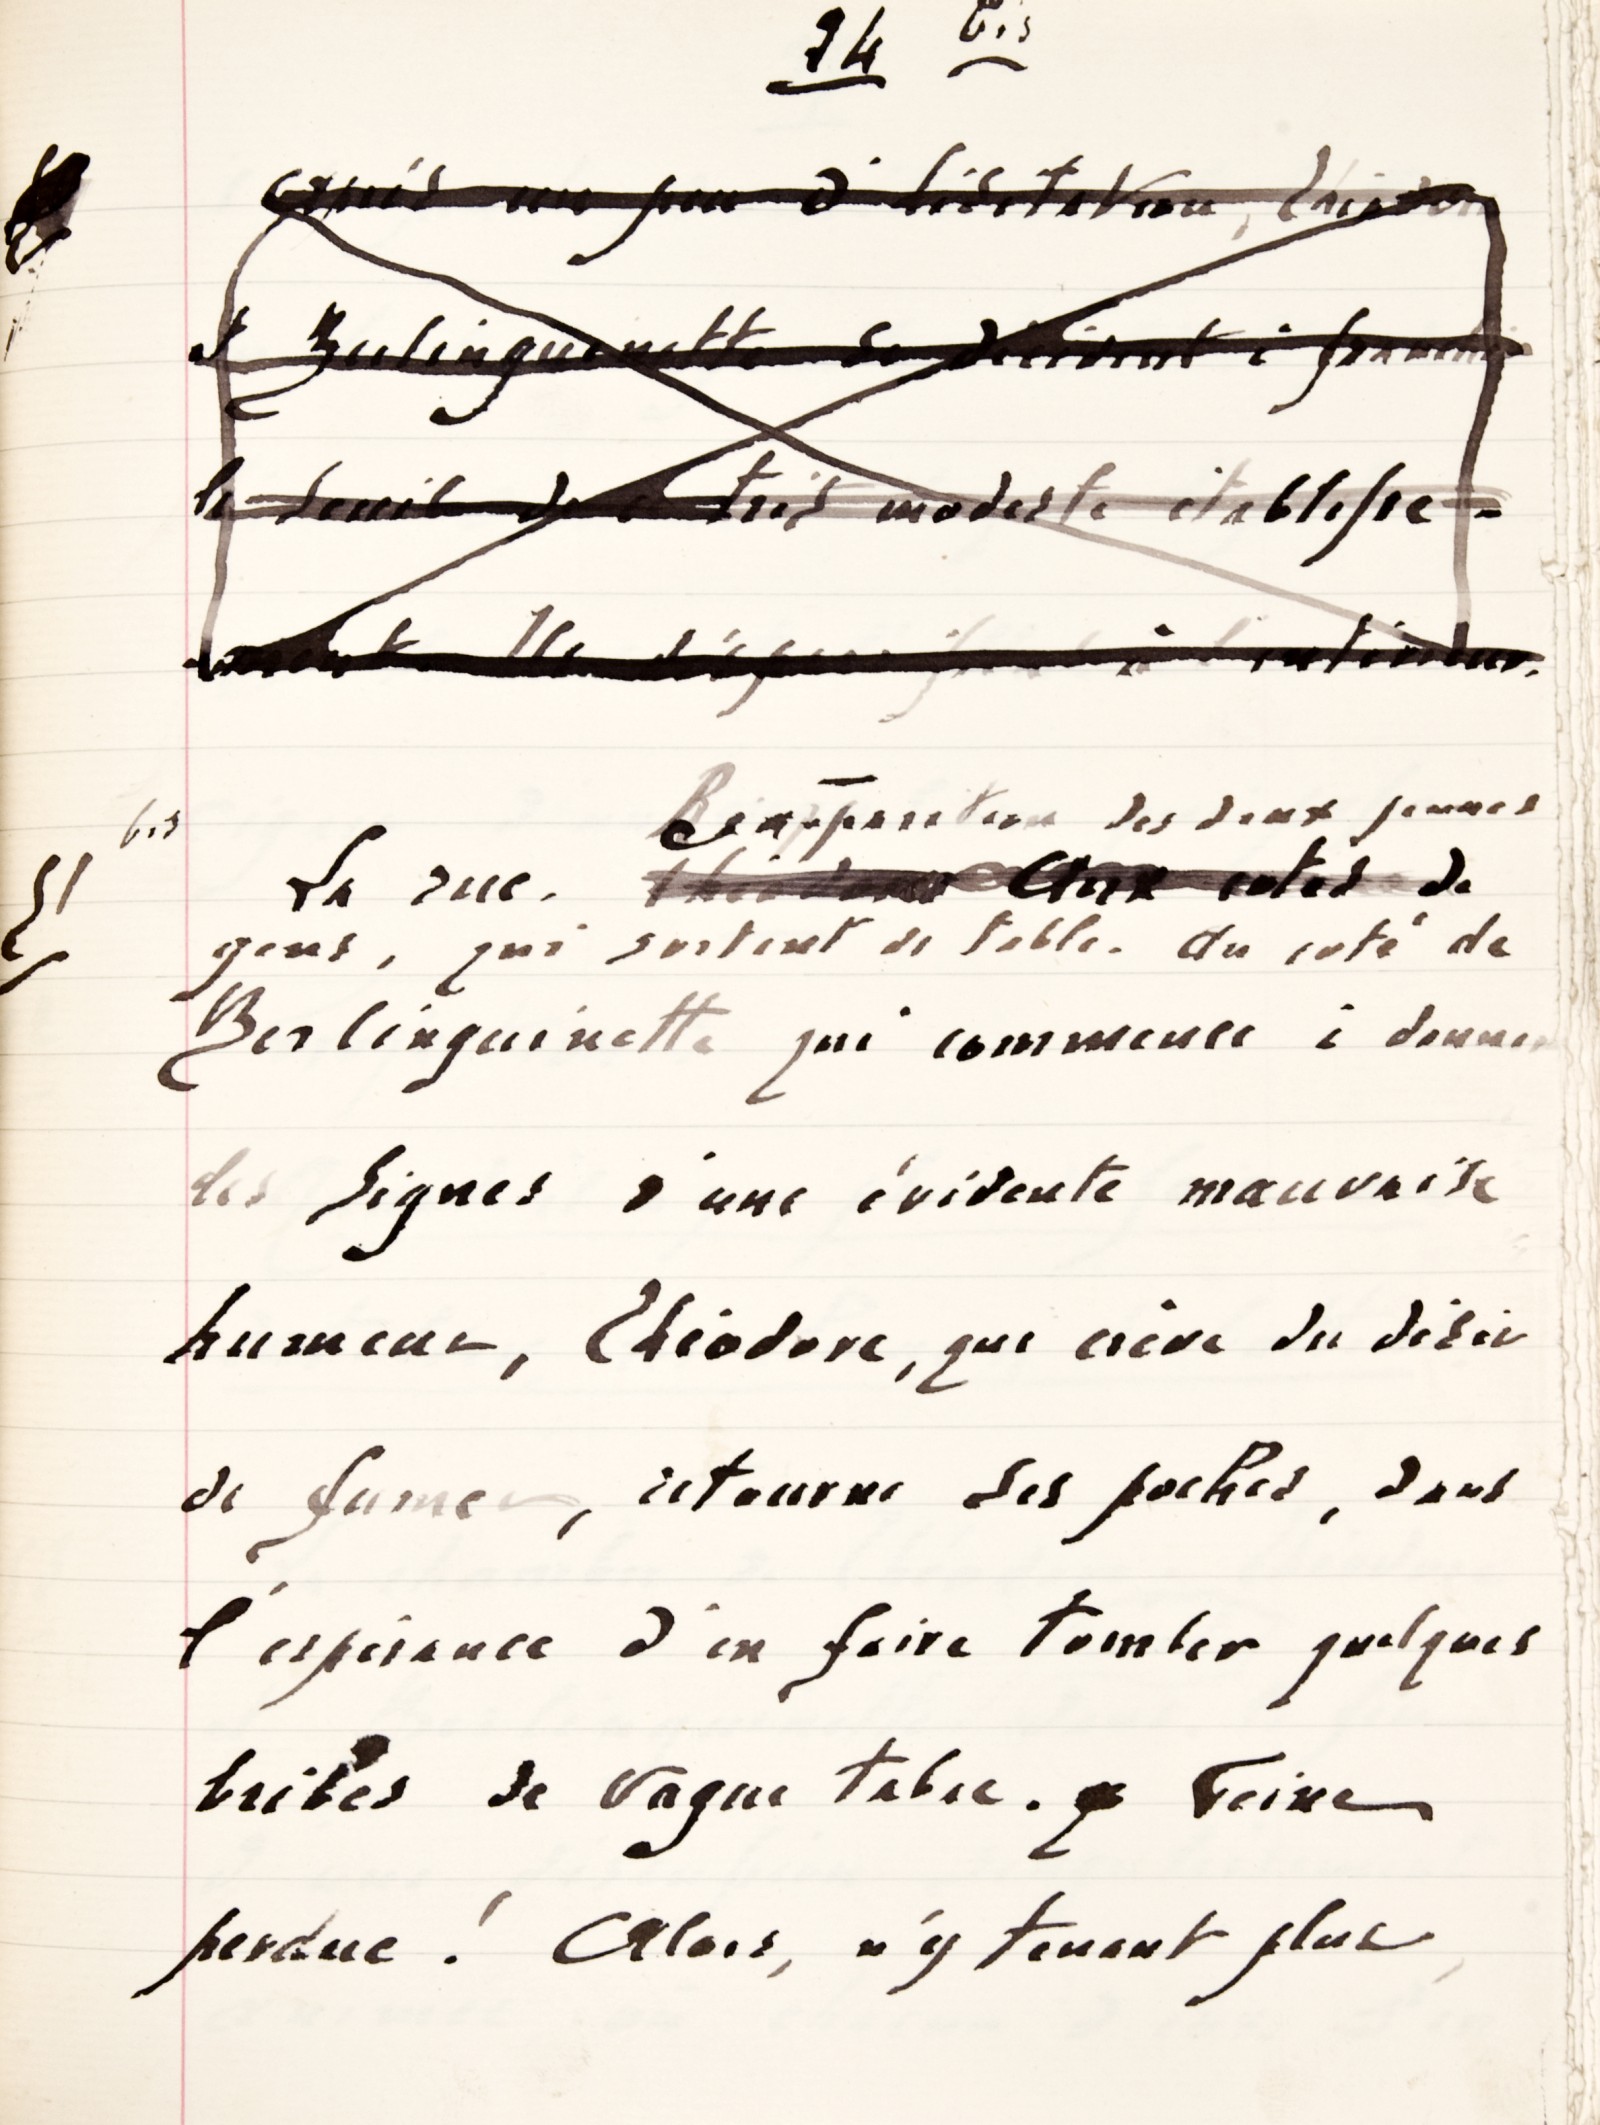 24 bis
après un peu d'hésitation, Théodore
et Berlinguinette se décident à franchir
le seuil de ce très modeste établisse=
ment. Ils disparaissent à l'intérieur.
Réapparition des deux jeunes
bis
La rue. Théodore Aux cotés de
gens, qui sortent de table. Au coté de
Berlinguinette qui commence à donner
des signes d'une évidente mauvaise
humeur, Théodore, que crève du désir
de fumer, retourne ses poches, dans
l'espérance d'en faire tomber quelques
bribes de vague tabac. Peine
perdue ! Alors, n'y tenant plus,